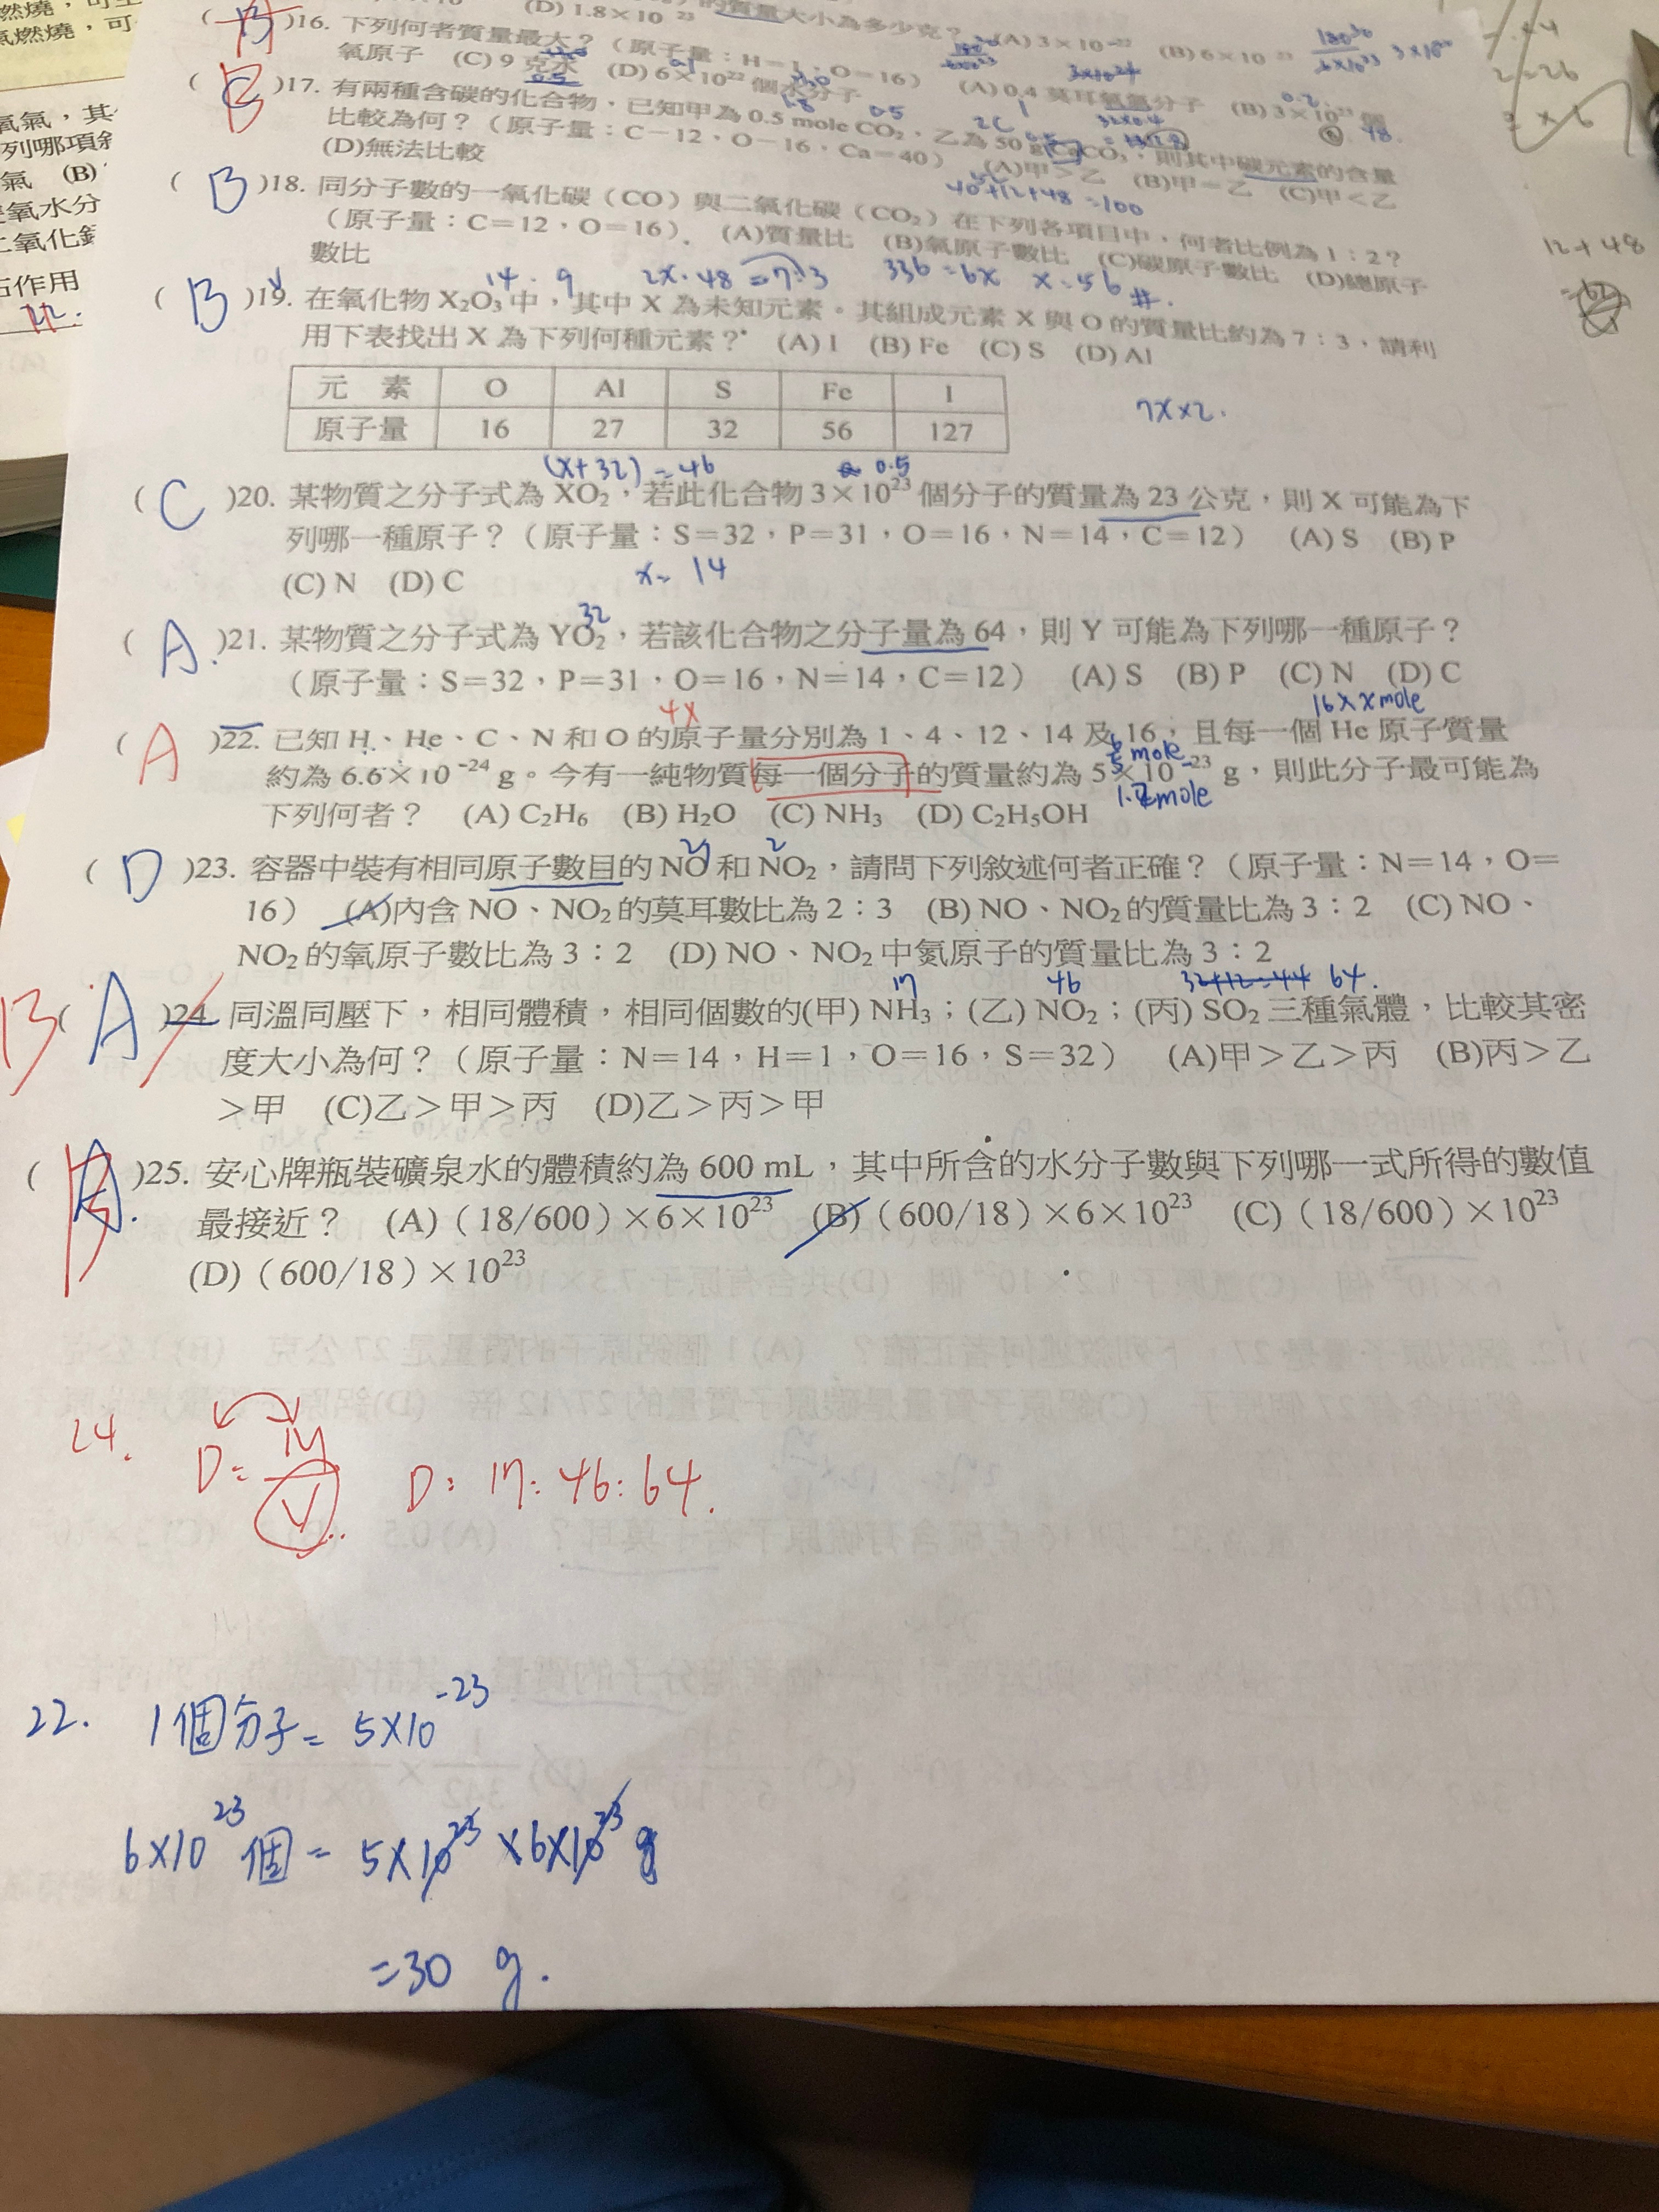 燃燒，可
氧燃燒，可
氧氣，其
列哪項敘
氣 (B)
雙氧水分
二氧化錳
石作用
(D) 1.8×10⁻²³
質量大小為多少克？ (A) 3×10⁻²² (B) 6×10
B )16. 下列何者質量最大？（原子量：H=1，O=16） (A) 0.4 莫耳氧氣分子 (B) 3×10²³ 個
氧原子 (C) 9 克水 (D) 6×10²² 個水分子
( B )17. 有兩種含碳的化合物，已知甲為 0.5 mole CO₂，乙為 50 g CaCO₃，則其中碳元素的含量
比較為何？（原子量：C=12，O=16，Ca=40） (A)甲＞乙 (B)甲＝乙 (C)甲＜乙
(D)無法比較
40+12+48=100
( B )18. 同分子數的一氧化碳（CO）與二氧化碳（CO₂）在下列各項目中，何者比例為 1：2？
（原子量：C=12，O=16） (A)質量比 (B)氧原子數比 (C)碳原子數比 (D)總原子
數比
12+48
2x.48=7:3 336=6x x=56 #.
( B )19. 在氧化物 X₂O₃ 中，其中 X 為未知元素。其組成元素 X 與 O 的質量比約為 7：3，請利
用下表找出 X 為下列何種元素？ (A) I (B) Fe (C) S (D) Al
元 素 O Al S Fe I
原子量 16 27 32 56 127
7X×2.
(x+32)=46 0.5
( C )20. 某物質之分子式為 XO₂，若此化合物 3×10²³ 個分子的質量為 23 公克，則 X 可能為下
列哪一種原子？（原子量：S=32，P=31，O=16，N=14，C=12） (A) S (B) P
(C) N (D) C
x=14
32
( A. )21. 某物質之分子式為 YO₂，若該化合物之分子量為 64，則 Y 可能為下列哪一種原子？
（原子量：S=32，P=31，O=16，N=14，C=12） (A) S (B) P (C) N (D) C
4x 16×x mole
( A )22. 已知 H、He、C、N 和 O 的原子量分別為 1、4、12、14 及 16，且每一個 He 原子質量
約為 6.6×10⁻²⁴ g。今有一純物質每一個分子的質量約為 5×10⁻²³ g，則此分子最可能為
下列何者？ (A) C₂H₆ (B) H₂O (C) NH₃ (D) C₂H₅OH
( D )23. 容器中裝有相同原子數目的 NO 和 NO₂，請問下列敘述何者正確？（原子量：N=14，O=
16） (A)內含 NO、NO₂ 的莫耳數比為 2：3 (B) NO、NO₂ 的質量比為 3：2 (C) NO、
NO₂ 的氧原子數比為 3：2 (D) NO、NO₂ 中氮原子的質量比為 3：2
17 46 32+12=44 64.
B ( A )24. 同溫同壓下，相同體積，相同個數的(甲) NH₃；(乙) NO₂；(丙) SO₂ 三種氣體，比較其密
度大小為何？（原子量：N=14，H=1，O=16，S=32） (A)甲＞乙＞丙 (B)丙＞乙
＞甲 (C)乙＞甲＞丙 (D)乙＞丙＞甲
( B )25. 安心牌瓶裝礦泉水的體積約為 600 mL，其中所含的水分子數與下列哪一式所得的數值
最接近？ (A)（18/600）×6×10²³ (B)（600/18）×6×10²³ (C)（18/600）×10²³
(D)（600/18）×10²³
24. D=M/V D= 17:46:64.
22. 1個分子=5×10⁻²³
6×10²³個=5×10²³×6×10²³g
=30 g.